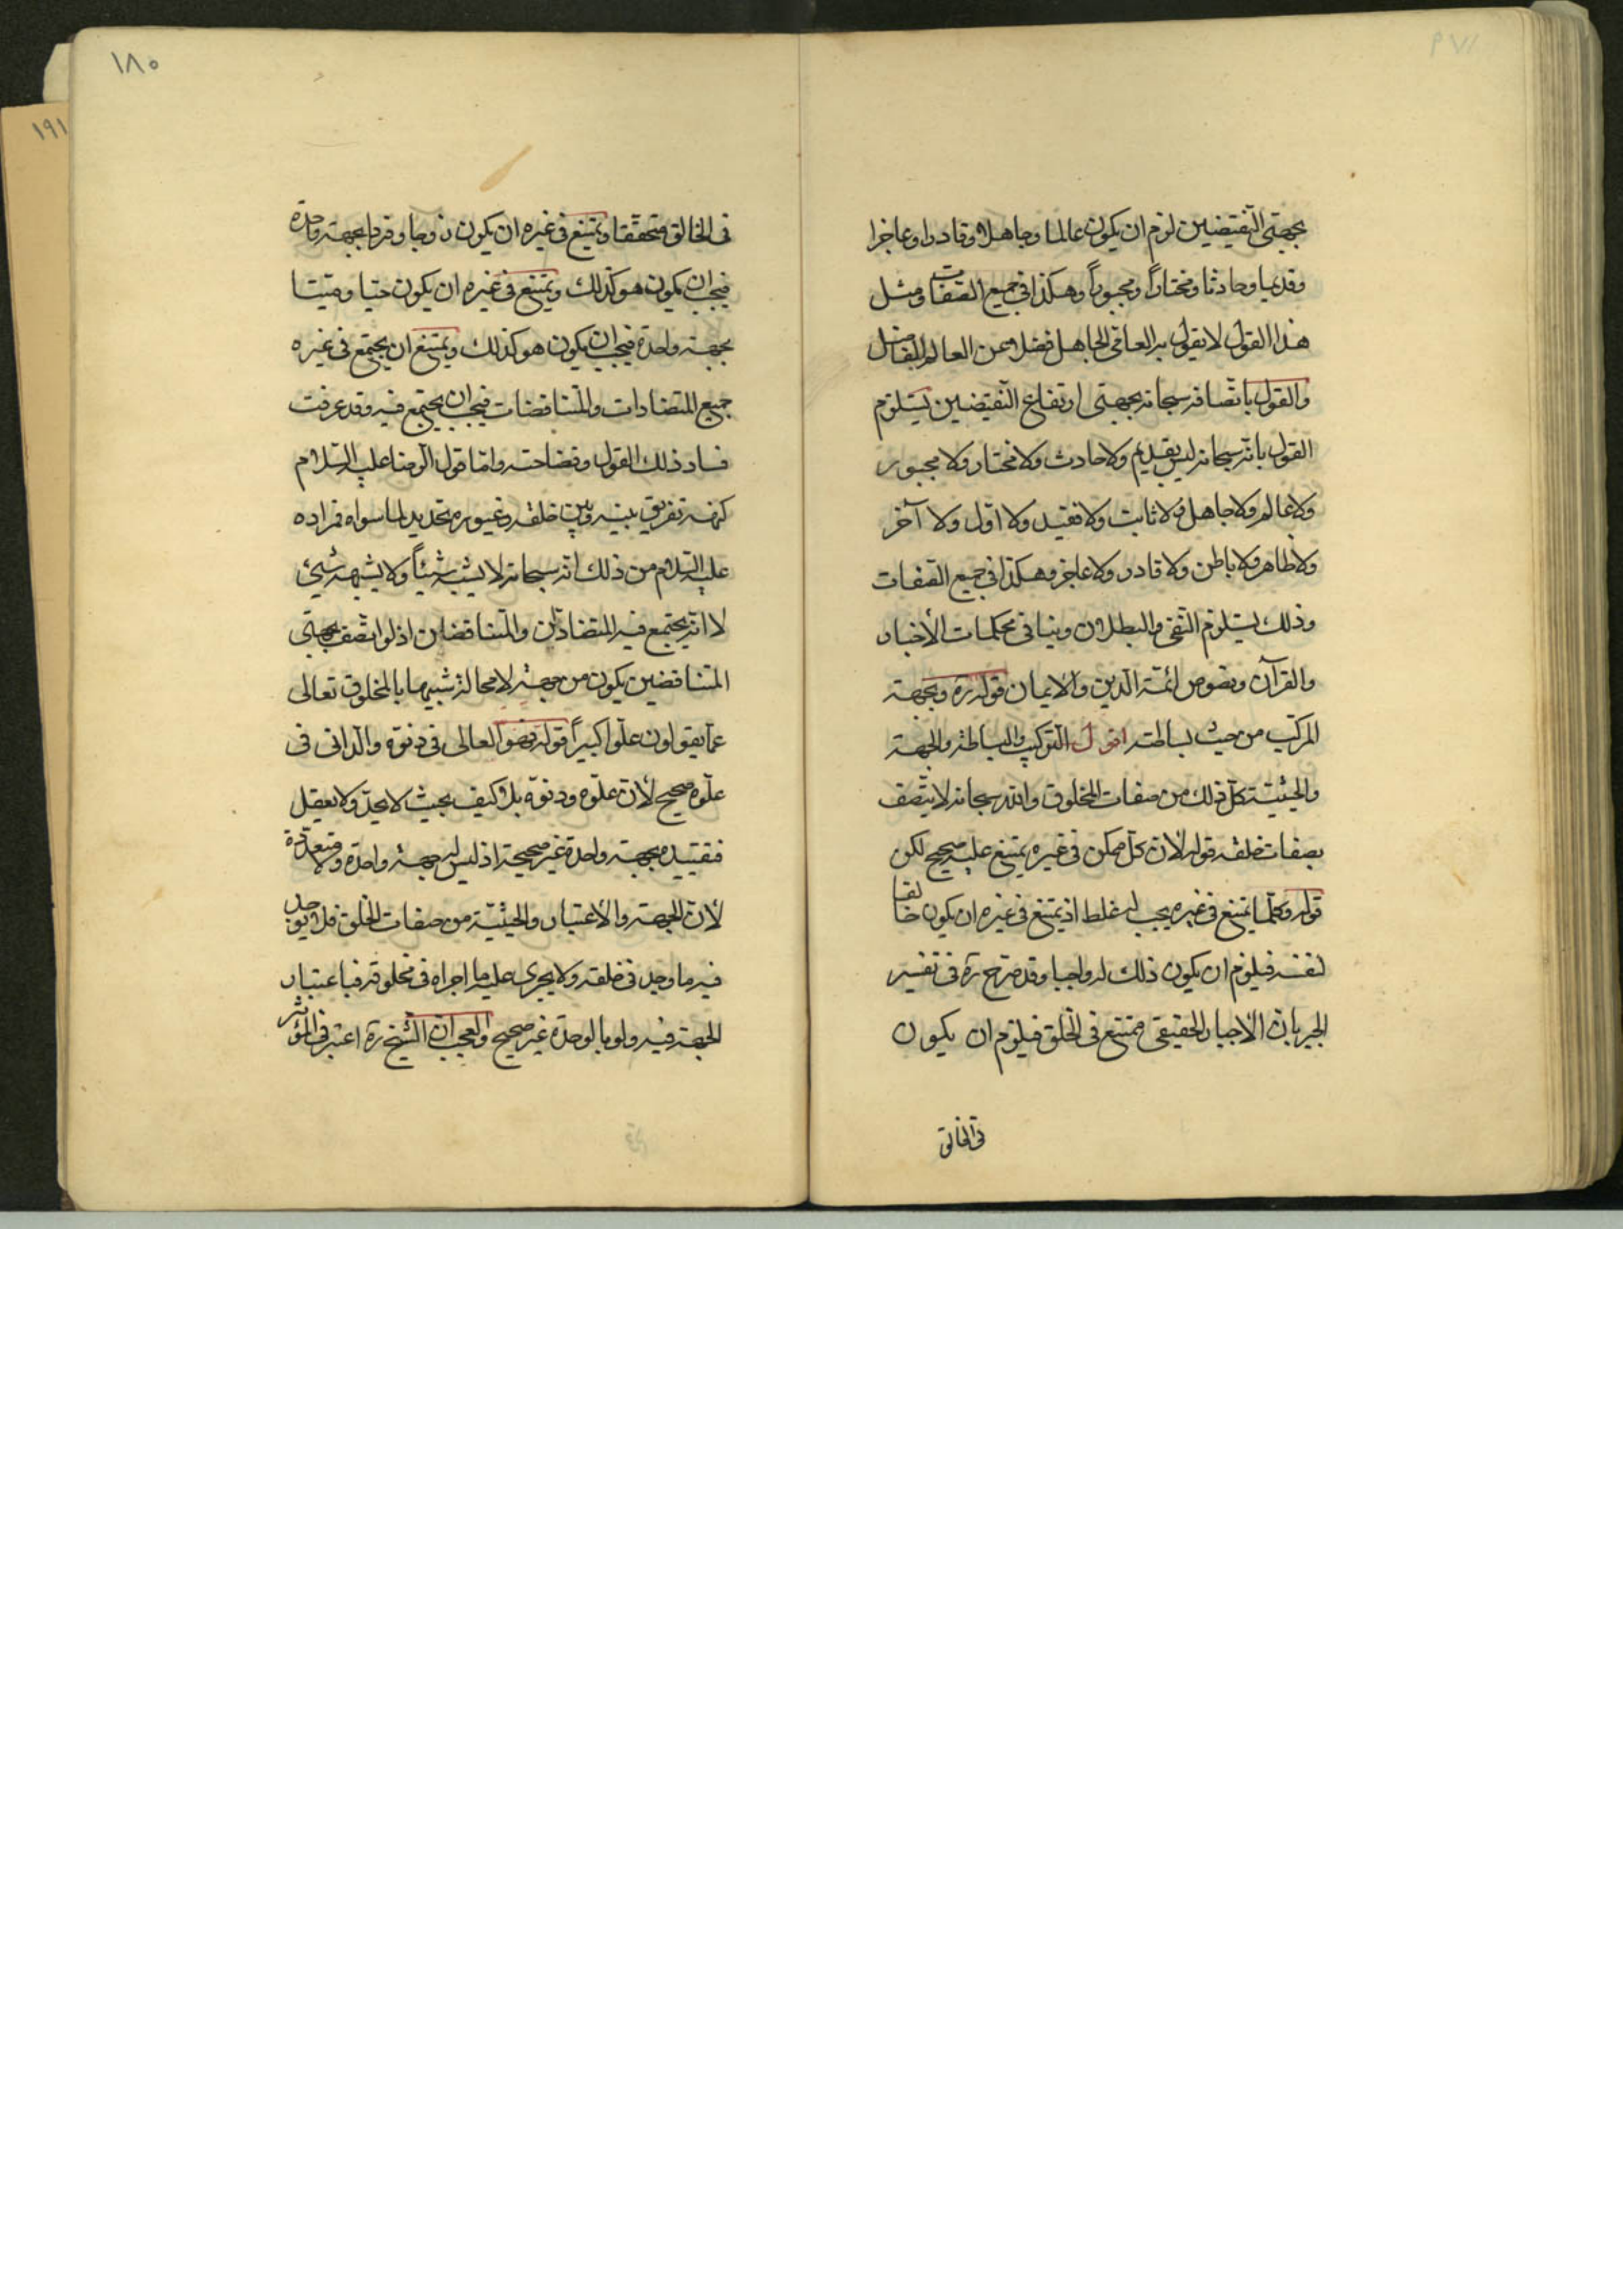 بجهتى النقيضين لزم ان يكون عالما وجاهلا وقادرا وعاجزا
وقديما وحادثا ومختارا ومجبورا وهكذا فى جميع الصفات ومثل
هذا القول لا يقول به العامى الجاهل فضلا عن العالم الفاضل
والقول باتصافه سبحانه بجهتى ارتفاع النقيضين يستلزم
القول بانه سبحانه ليس بقديم ولا حادث ولا مختار ولا مجبور
ولا عالم ولا جاهل ولا ثابت ولا فقيد ولا اول ولا آخر
ولا ظاهر ولا باطن ولا قادر ولا عاجز وهكذا فى جميع الصفات
وذلك يستلزم النفى والبطلان وينافى محكمات الأخبار
والقرآن ونصوص ائمة الدين والايمان قوله ره وبجهة
المركب من حيث بساطته اقول التركيب والبساطة والجهة
والحيثية كل ذلك من صفات المخلوق والله سبحانه لا يتصف
بصفات خلقه قوله لأن كل ممكن فى غيره يمتنع عليه صحيح لكن
قوله وكلما يمتنع فى غيره يجب له غلط اذ يمتنع فى غيره ان يكون خالقا
لنفسه فيلزم ان يكون ذلك له واجبا وقد صرح ره فى تفسير
الجبر بان الاجبار الحقيقى ممتنع فى الخلق فيلزم ان يكون
فى الخالق
١٨٠
١٩١
فى الخالق متحققا ويمتنع فى غيره ان يكون زوجا وفردا بجهة واحدة
فيجب ان يكون هو كذلك ويمتنع فى غيره ان يكون حيا وميتا
بجهة واحدة فيجب ان يكون هو كذلك ويمتنع ان يجتمع فى غيره
جميع المتضادات والمتناقضات فيجب ان يجتمع فيه وقد عرفت
فساد ذلك القول وفضاحته واما قول الرضا عليه السلام
كنهه تفريق بينه وبين خلقه وغيوره تحديد لما سواه فمراده
عليه السلام من ذلك انه سبحانه لا يشبه شيئاً ولا يشبهه شئ
لا انه يجتمع فيه المتضادان والمتناقضان اذ لو اتصف بجهتى
المتناقضين يكون من جهة لا محالة شبيها بالمخلوق تعالى
عما يقولون علوا كبيراً قوله فهو العالى فى دنوه والدانى فى
علوه صحيح لأن علوه ودنوه بلا كيف بحيث لا يحد ولا يعقل
فتقييده بجهة واحدة غير صحيحة اذ ليس له جهة واحدة ولا متعددة
لأن الجهة والاعتبار والحيثية من صفات الخلق فلا يوجد
فيه ما وجد فى خلقه ولا يجرى عليه ما اجراه فى مخلوقه فباعتبار
الجهة فيه ولو بالوحدة غير صحيح والعجب ان الشيخ ره اعتبر فى المؤثر